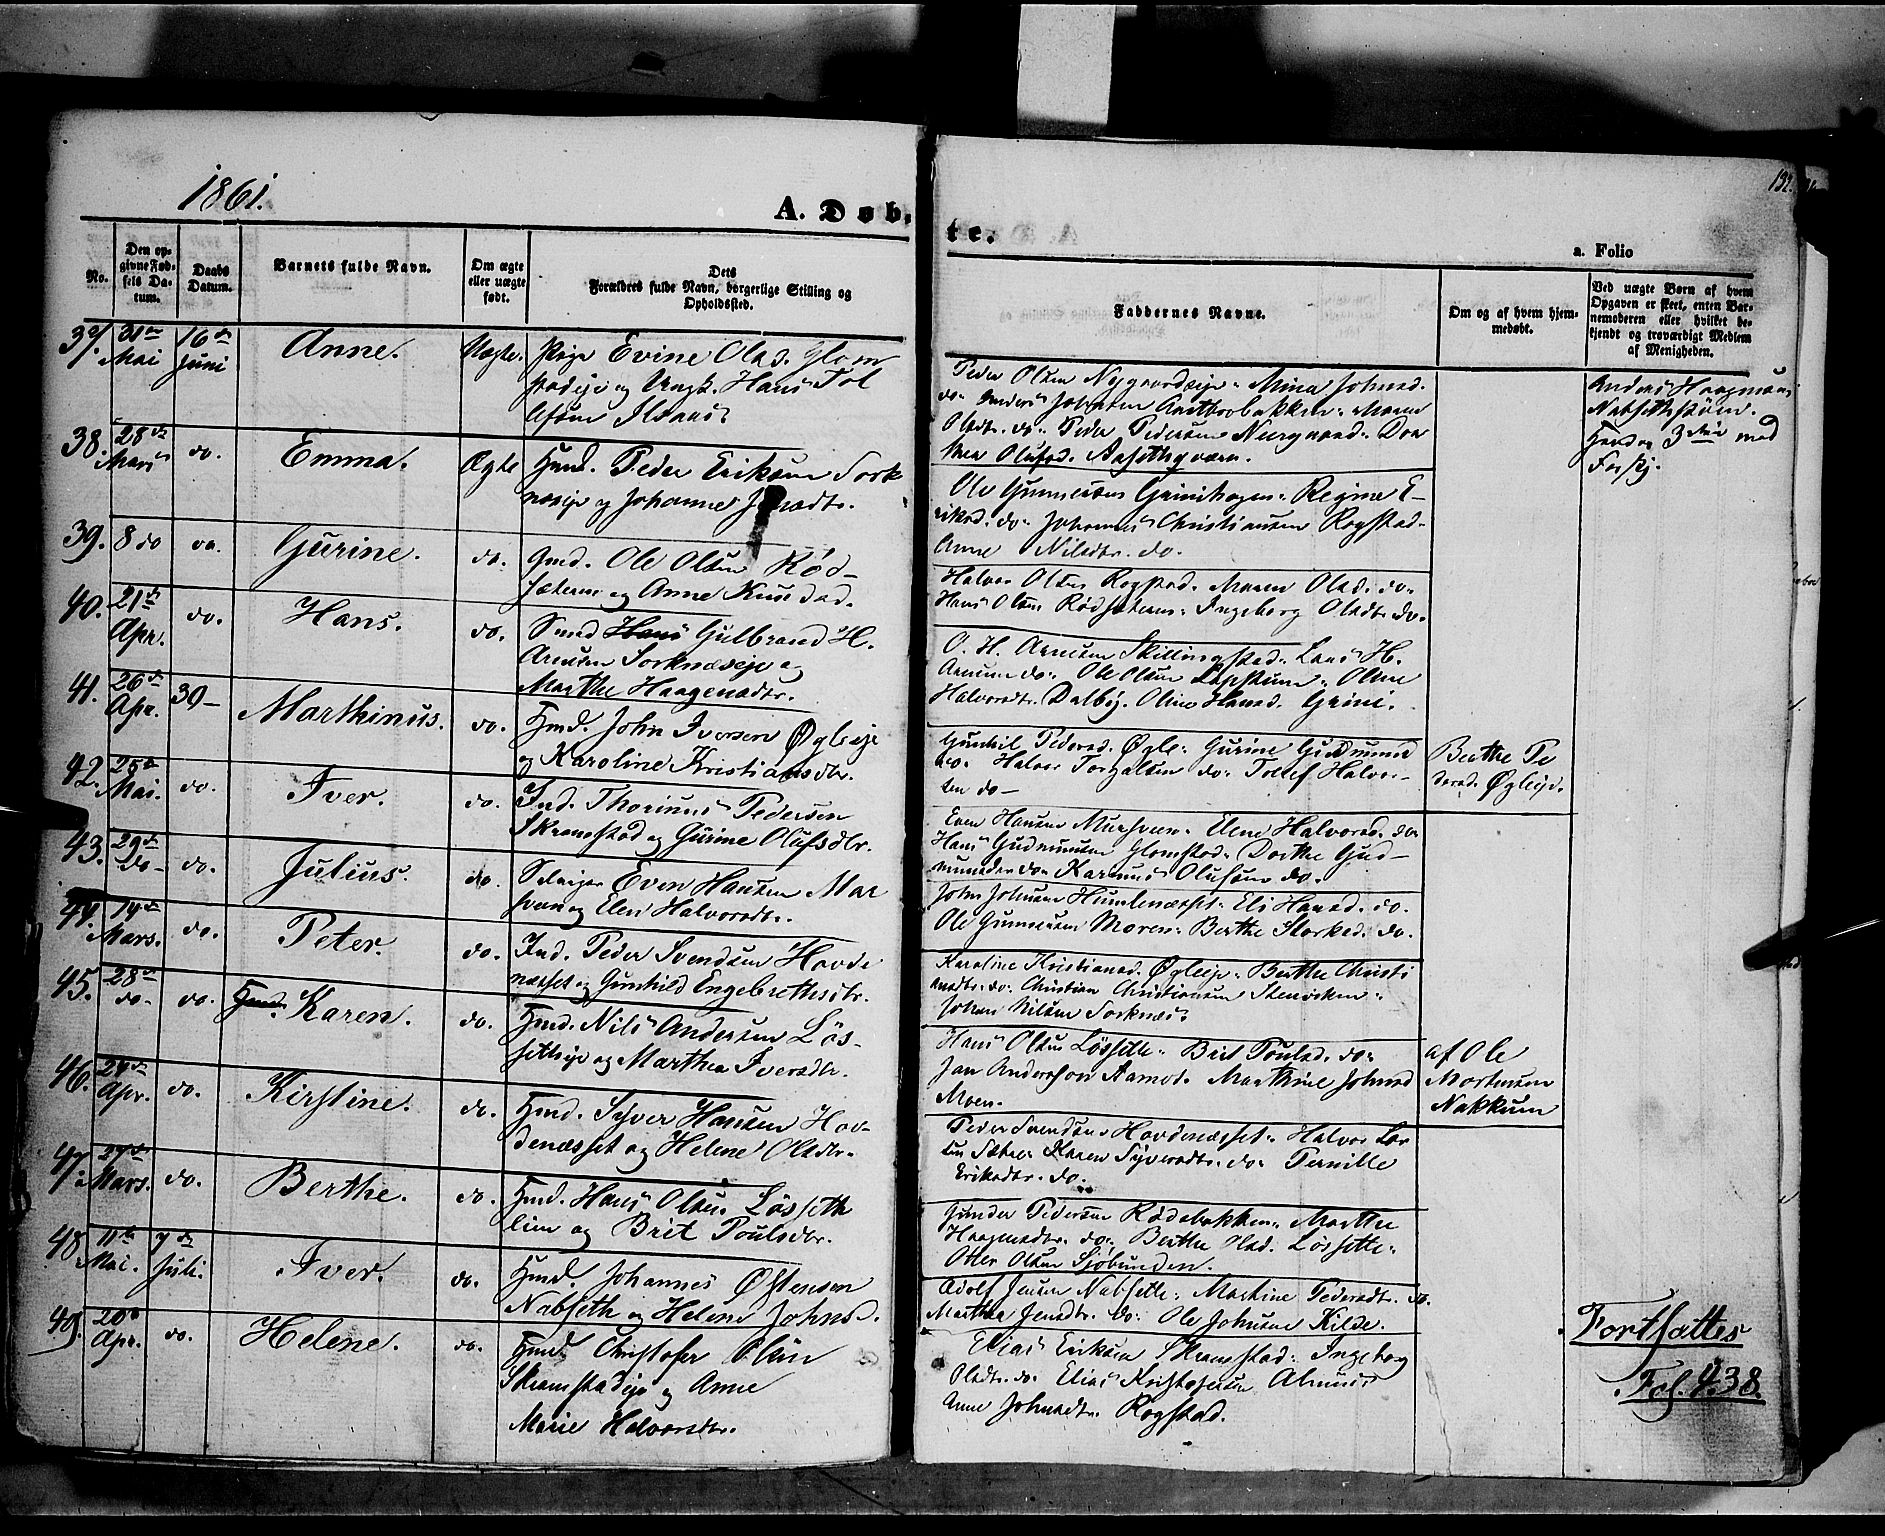 1861.
A. Døb-
te.
132.
a. Folio
No.
Den op-
givne Fød-
sels Da-
tum.
Daabs
Datum.
Barnets fulde Navn.
Om ægte
eller uægte
født.
Dets
Forældres fulde Navn, borgerlige Stilling og
Opholdssted.
Faddernes Navne.
Om og af hvem hjem-
medøbt.
Ved uægte Børn af hvem
Opgaven er skeet, enten Bar-
nemoderen eller hvilket be-
kjendt og troværdigt Medlem
af Menigheden.
37. 31te Mai 16de Juni Anne. Uægte. Pige Evine Olsd. Glom
stadeje og Ungk. Hans Tol
lefsen
Peder Olsen Nygaardseje. Mina Johnsd.
do. Anders Johnsen
Olsdtr. do. Peder Pedersen Neergaard. Dor
thea Olufsd.
Nabsethstøen.
3die med
38. 28de Mars do. Emma. Ægte Hmd. Peder Eriksen Sork
næseje og Johanne
Ole Gunnersen Grinihagen. Regine E-
riksd. do. Johannes Christiansen Rogstad.
Anne Nilsdtr. do.
39. 8 do do. Gurine. do. Gmd. Ole Olsen Rød-
sæteren og Anne Knudsd.
Halvor Olsen Rogstad. Maren Olsd. do.
Hans Olsen Rødsæteren. Ingeborg Olsdtr. do.
40. 21de Apr. do. Hans. do. Smed Hans Gulbrand H.
Arnesen Sorknæseje og
Marthe Haagensdtr.
O. H. Arnesen Skillingstad. Lars H.
Arnesen do. Ole Olsen
Halvorsdtr. Dalby. Oline Hansd. Grini.
41. 26de Apr. 30- Marthinus. do. Hmd. John Iversen Øgleeje
og Karoline Kristiansdtr.
Gunhil Pedersd. Øgle. Gurine Gudmund
do. Halvor Torgalsen do. Tollef Halvor-
sen do-
Berthe Pe
dersd. Øgleeje.
42. 25de Mai. do. Iver. do. Ind. Thorinus Pedersen
Skramstad og Gurine Olufsdtr.
Even Hansen Mursveen. Elene Halvorsd. do.
Hans Gudmunsen Glomstad. Dorthe Gud-
munsdtr do. Rasmus Olufsen do.
43. 29de Do- do. Julius. do. Selveier Even Hansen Mur
sveen og Elen Halvorsdtr.
John Johnsen Humlenæsset. Eli Hansd. do.
Ole Gunnersen Moren. Berthe Storksd. do.
44. 14de Mars. do. Peter. do. Ind. Peder Svendsen Hovde
næsset og Gunhild Engebrethsdtr.
Karoline Kristiansd. Øgleeje. Berthe Christi
ansdtr. do. Christian Christiansen
Johan Nilsen Sorknæs.
45. 28de do. do. Hmd. Karen. do. Hmd. Nils Andersen Løs-
setheje og Marthea Iversdtr.
Hans Olsen Løssette. Brit Poulsd. do.
Jan Andersson Aamot. Marthine Johnsd
Moen.
af Ole
Mortensen
Nakkum
46. 24de Apr. do. Kirstine. do. Hmd. Syver Hansen Hov-
denæsset og Helene Olsdtr.
Peder Svendsen Hovdenæsset. Halvor Lar
sen Sætre. Karen Syversdtr. do. Pernille
Eriksdtr. do.
47. 27de Mars. do. Berthe. do. Hmd. Hans Olsen Løsseth
lien og Brit Poulsdtr.
Gunder Pedersen Rødsbakken. Marthe
Haagensdtr. do. Berthe Olsd. Løssette.
Otter Olsen Sjøbunden.
48. 11te Mai. 7de Juli. Iver. do. Hmd. Johannes Østensen
Nabseth og Helene Johnsd.
Adolf Jensen Nabsette. Martine Pedersdtr. do.
Marthea Jensdtr. do. Ole Johnsen Kilde.
49. 20de Apr. do. Helene. do. Hmd. Christofer Olsen
Skramstadeje og Anne
Marie Halvorsdtr.
Elias Eriksen Skramstad. Ingeborg
Olsdtr. do. Elias Kristofersen
Anne Johnsdtr. Rogstad.
Fortsættes
Fol. 438.